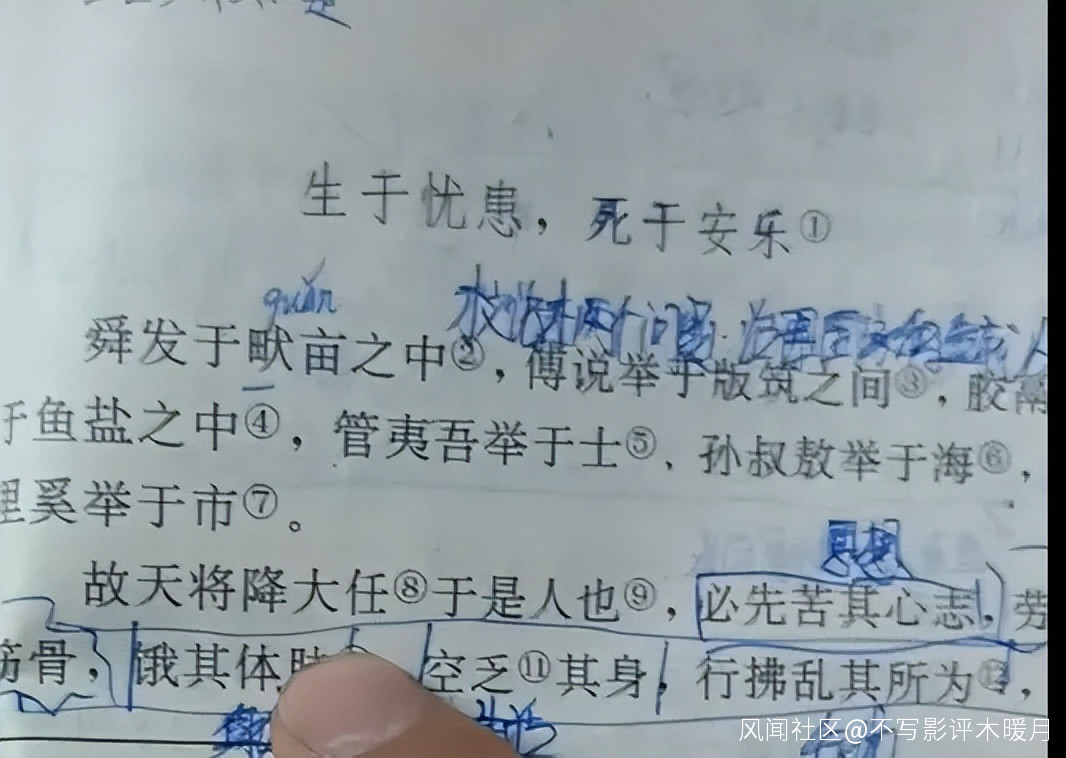 生于忧患，死于安乐①
quǎn
舜发于畎亩之中②，傅说举于版筑之间③，胶鬲
鱼盐之中④，管夷吾举于士⑤，孙叔敖举于海⑥，
里奚举于市⑦。
思想
故天将降大任⑧于是人也⑨，必先苦其心志，劳
筋骨，饿其体 空乏⑪其身，行拂乱其所为⑫，
风闻社区@不写影评木暖月